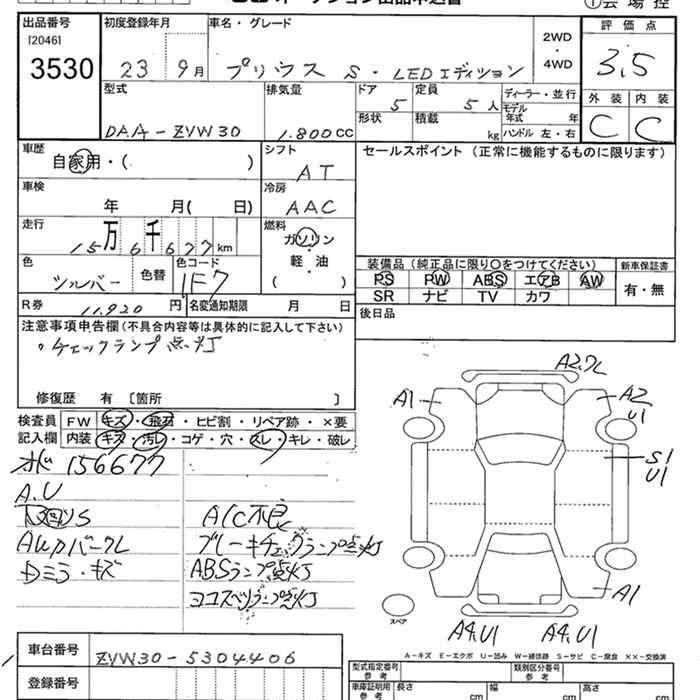 ①会場控
出品番号
[2046]
3530
初度登録年月
23 9月
車名・グレード
プリウス S・LEDエディション
2WD
・
4WD
評価点
3.5
外装 内装
C C
型式
DAA-ZVW30
排気量
1.800cc
ドア
5
形状
定員
5人
積載
kg
ディーラー・並行
モデル年式 年
ハンドル 左・右
車歴
自家用・( )
シフト
AT
セールスポイント(正常に機能するものに限ります)
車検
年 月( 日)
冷房
AAC
走行
15万6千677km
燃料
ガソリン
・
軽・油
( )
色
シルバー
色替
色コード
1F7
装備品(純正品に限り〇をつけてください)
PS PW ABS エアB AW
SR ナビ TV カワ
新車保証書
有・無
R券
11,920円
名変通知期限 月 日
後日品
注意事項申告欄(不具合内容等は具体的に記入して下さい)
・チェックランプ点灯
修復歴 有〔箇所 〕
検査員記入欄
FW キズ・飛石・ヒビ割・リペア跡・×要
内装 キズ・汚れ・コゲ・穴・スレ・キレ・破レ
156677
A.U
AWガバークレ
Dミラ・キズ
A/C不良
ブレーキチェックランプ点灯
ABSランプ点灯
ヨコスベリランプ点灯
A2.クレ
A1
A2
U1
S1
U1
A1
A4.U1
A4.U1
スペア
A-キズ E-エクボ U-凹み W-補修跡 S-サビ C-腐食 ××-交換済
車台番号
ZVW30-5304406
登録番号
型式指定番号
参考
類別区分番号
参考
車庫証明用
参考
長さ cm
幅 cm
高さ cm